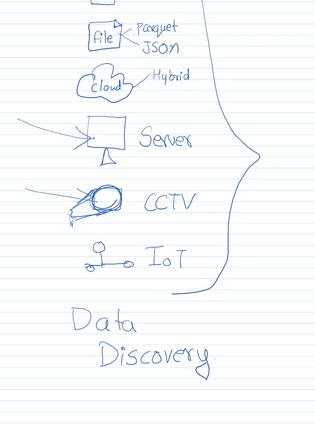 Parquet
file
JSON
Cloud
Hybrid
Server
CCTV
IoT
Data
Discovery